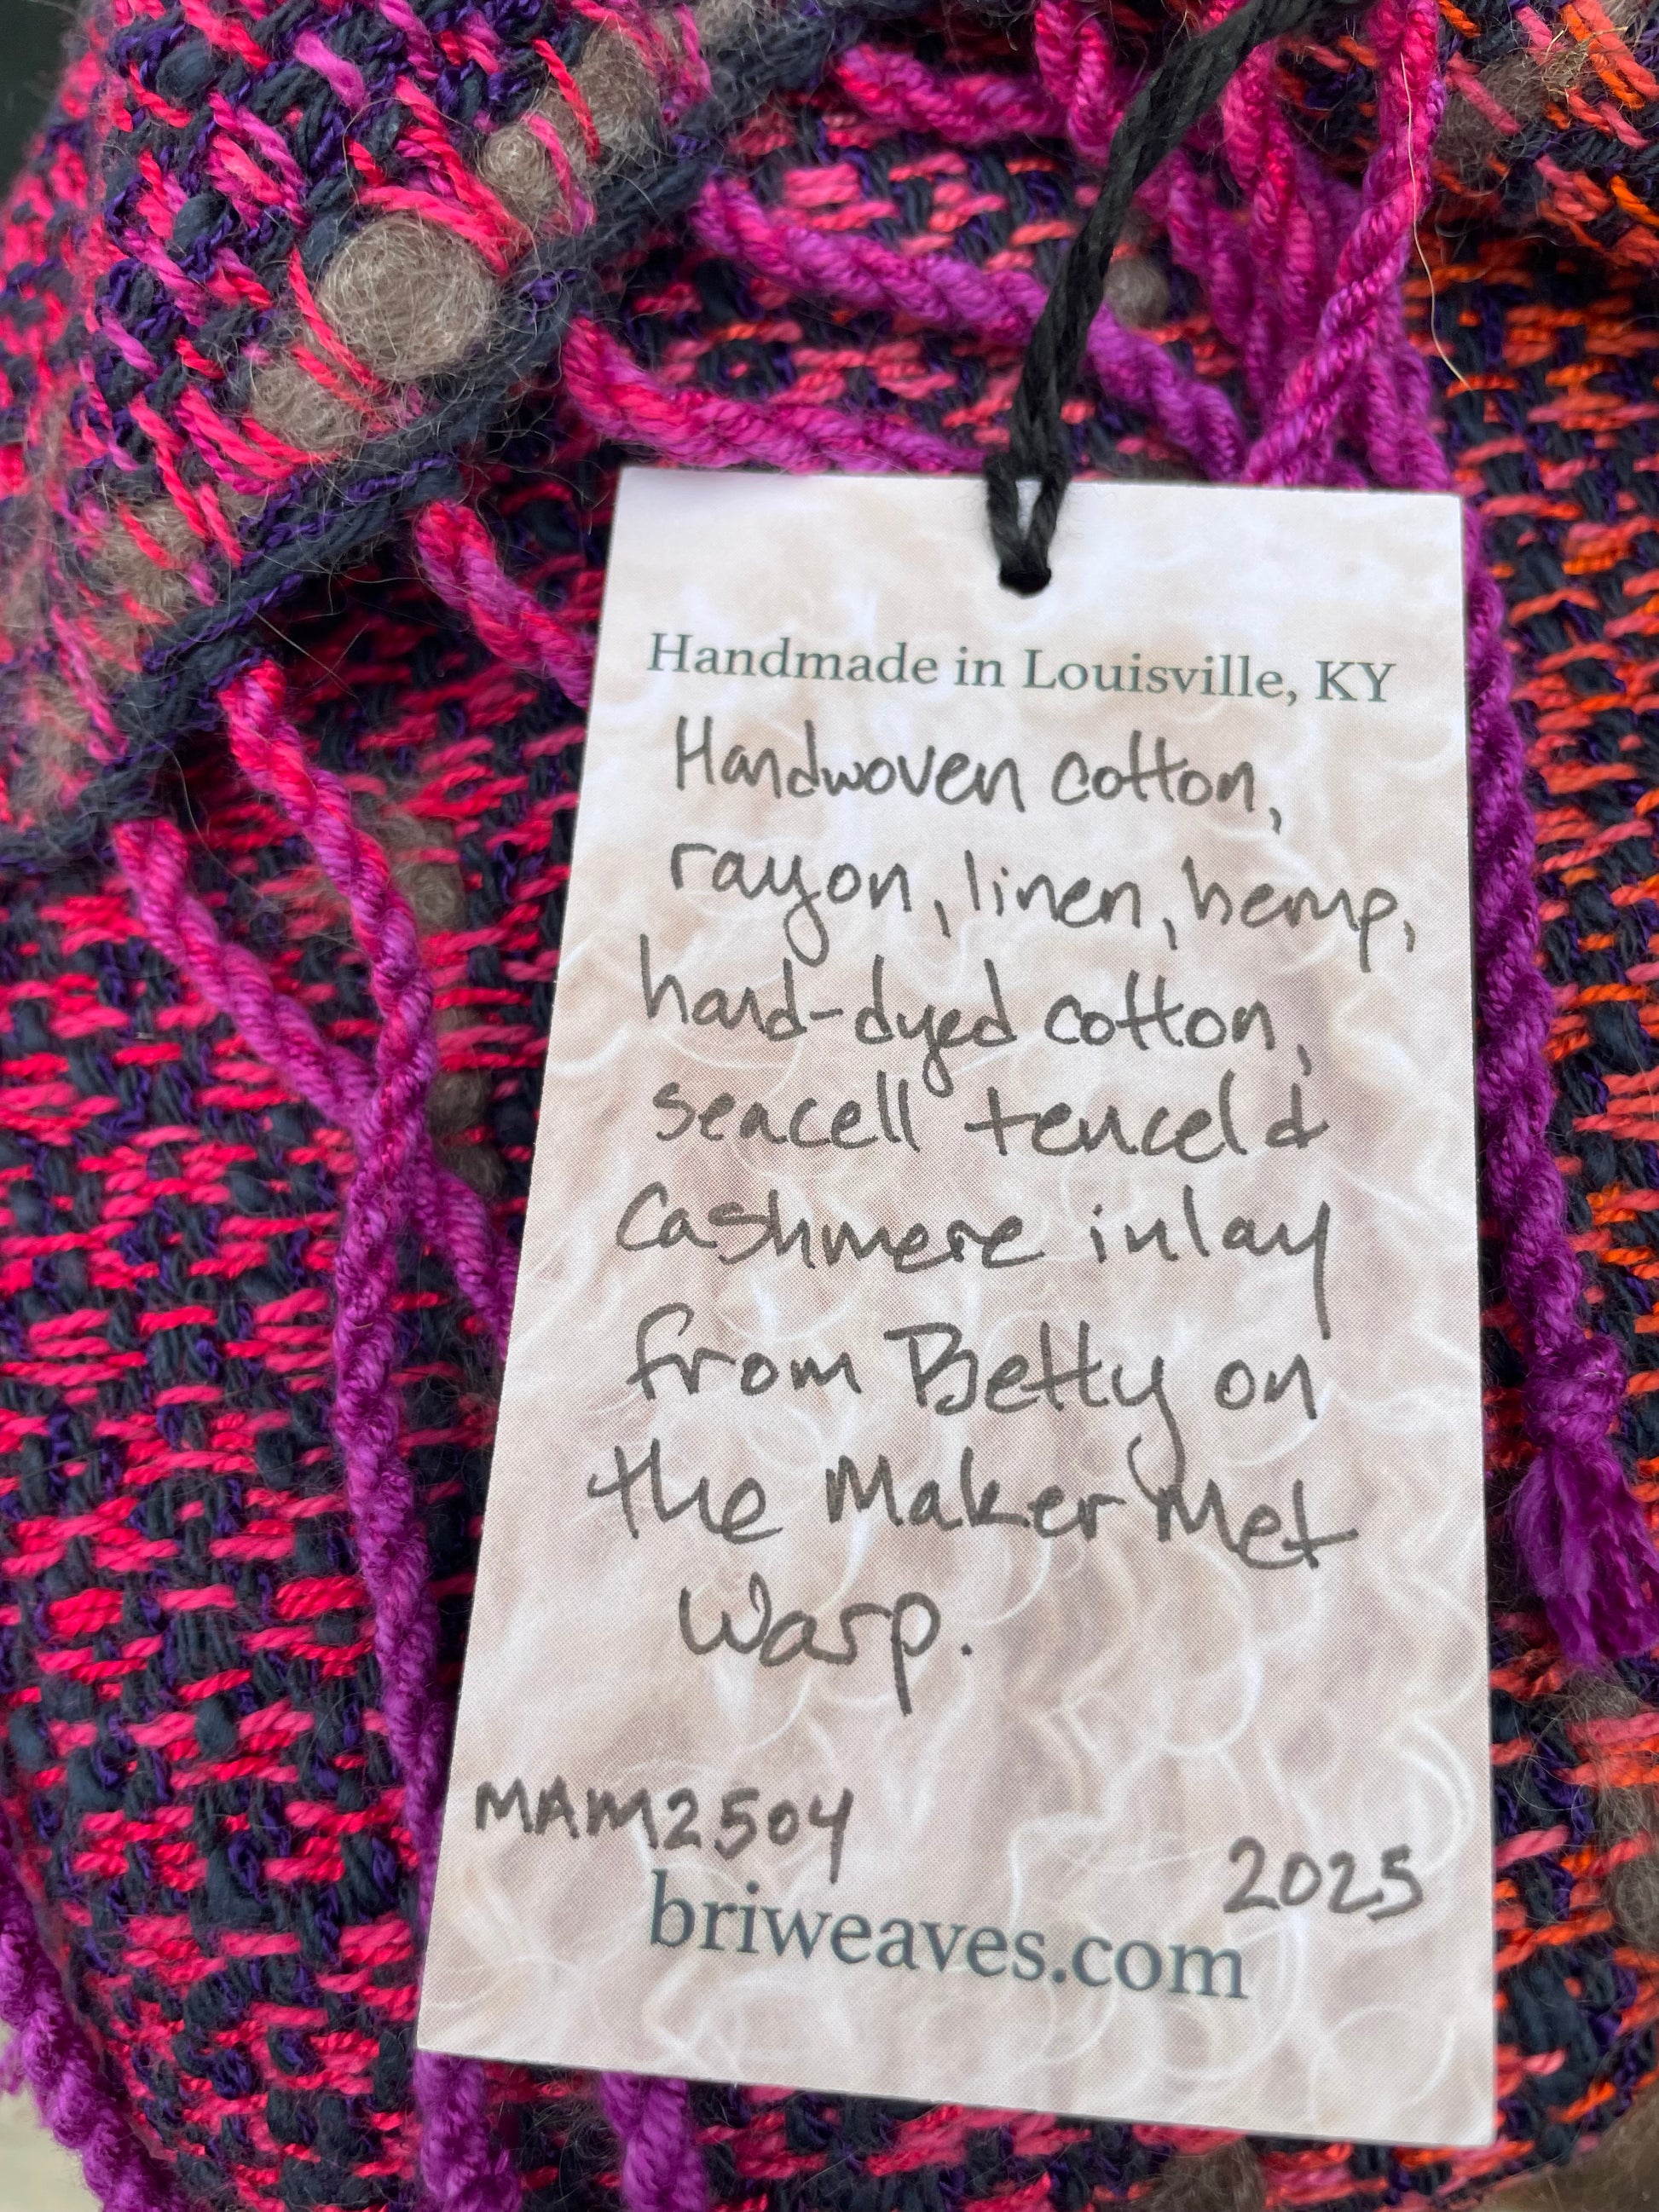 Handmade in Louisville, KY
Handwoven cotton,
rayon, linen, hemp,
hand-dyed cotton,
seacell tencel &
Cashmere inlay
from Betty on
the Maker Met
Warp.
MAM2504
2025
briweaves.com